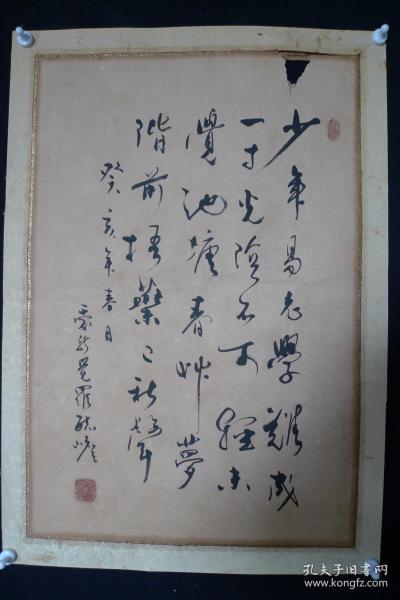 少年易老學難成
一寸光陰不可輕未
覺池塘春艸夢
階前梧葉已秋聲
癸亥年春日
愛新覺羅毓嶦
孔夫子旧书网
www.kongfz.com